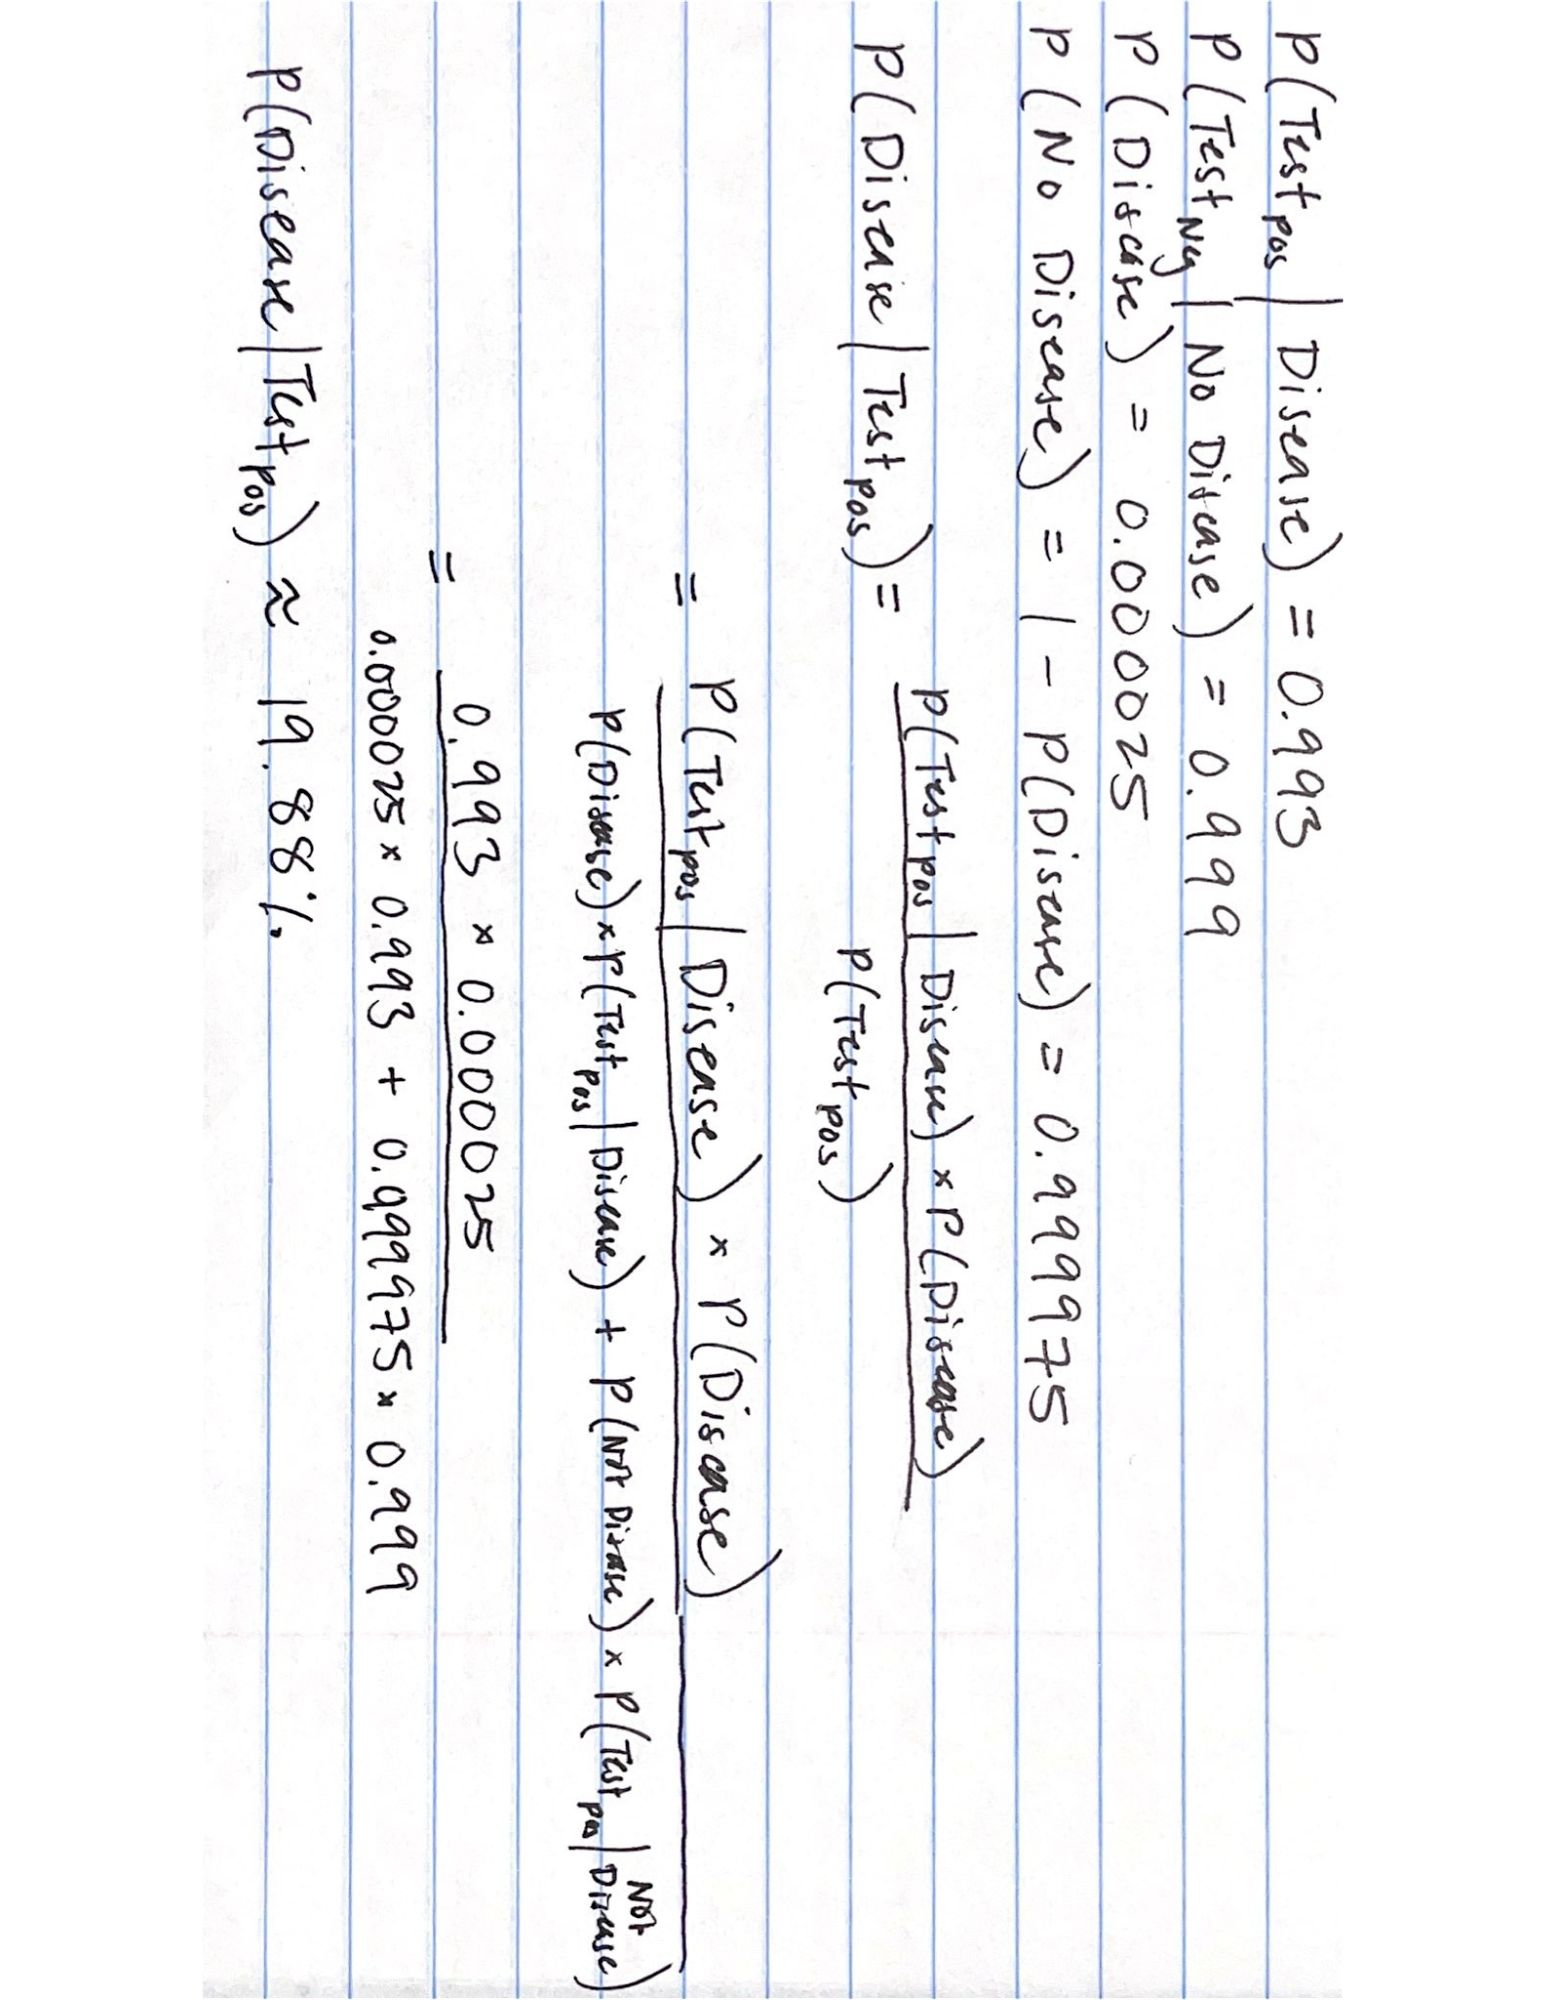 P(Test pos | Disease) = 0.993
P(Test Neg | No Disease) = 0.999
P(Disease) = 0.000025
P(No Disease) = 1 - P(Disease) = 0.999975
P(Test pos | Disease) × P(Disease)
P(Disease | Test pos) =
P(Test pos)
= P(Test pos | Disease) × P(Disease)
P(Disease) × P(Test pos | Disease) + P(Not Disease) × P(Test pos | Not Disease)
= 0.993 × 0.000025
0.000025 × 0.993 + 0.999975 × 0.999
P(Disease | Test pos) ≈ 19.88%